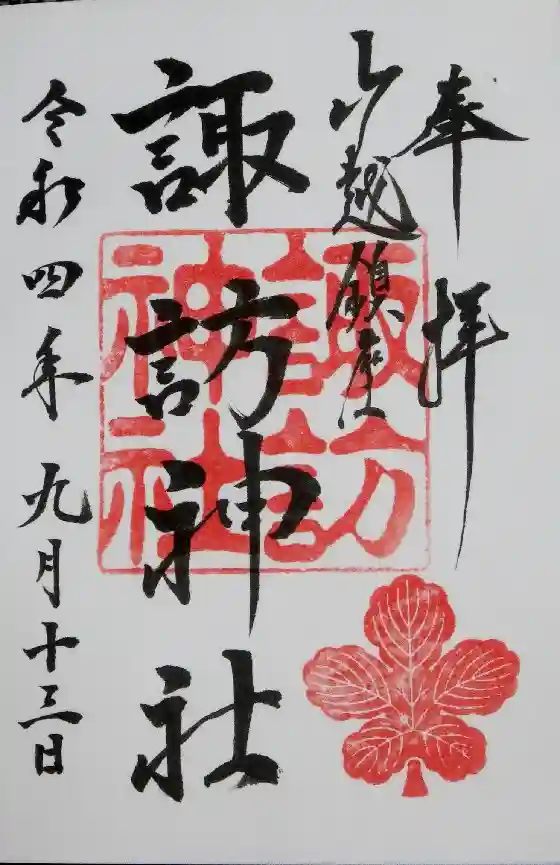 奉拝
越鎮座
諏訪神社
令和四年九月十三日
諏訪
神社